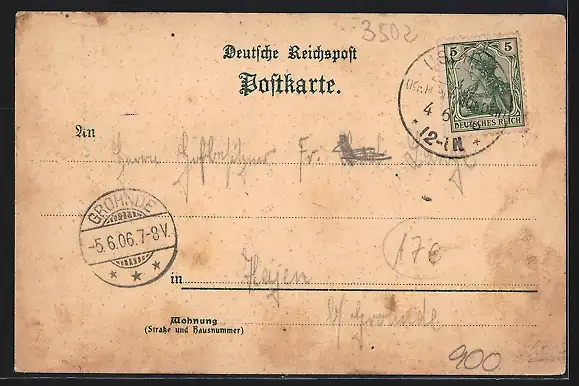 3502
Deutsche Reichspost
Postkarte.
5 5
DEUTSCHES REICH
US
4 6
* 12-1 N +
An
Herrn Fr.
GROHNDE
-5.6.06.7-8V.
* * *
176
in Hajen
b/ Grohnde
Wohnung
(Straße und Hausnummer)
900.